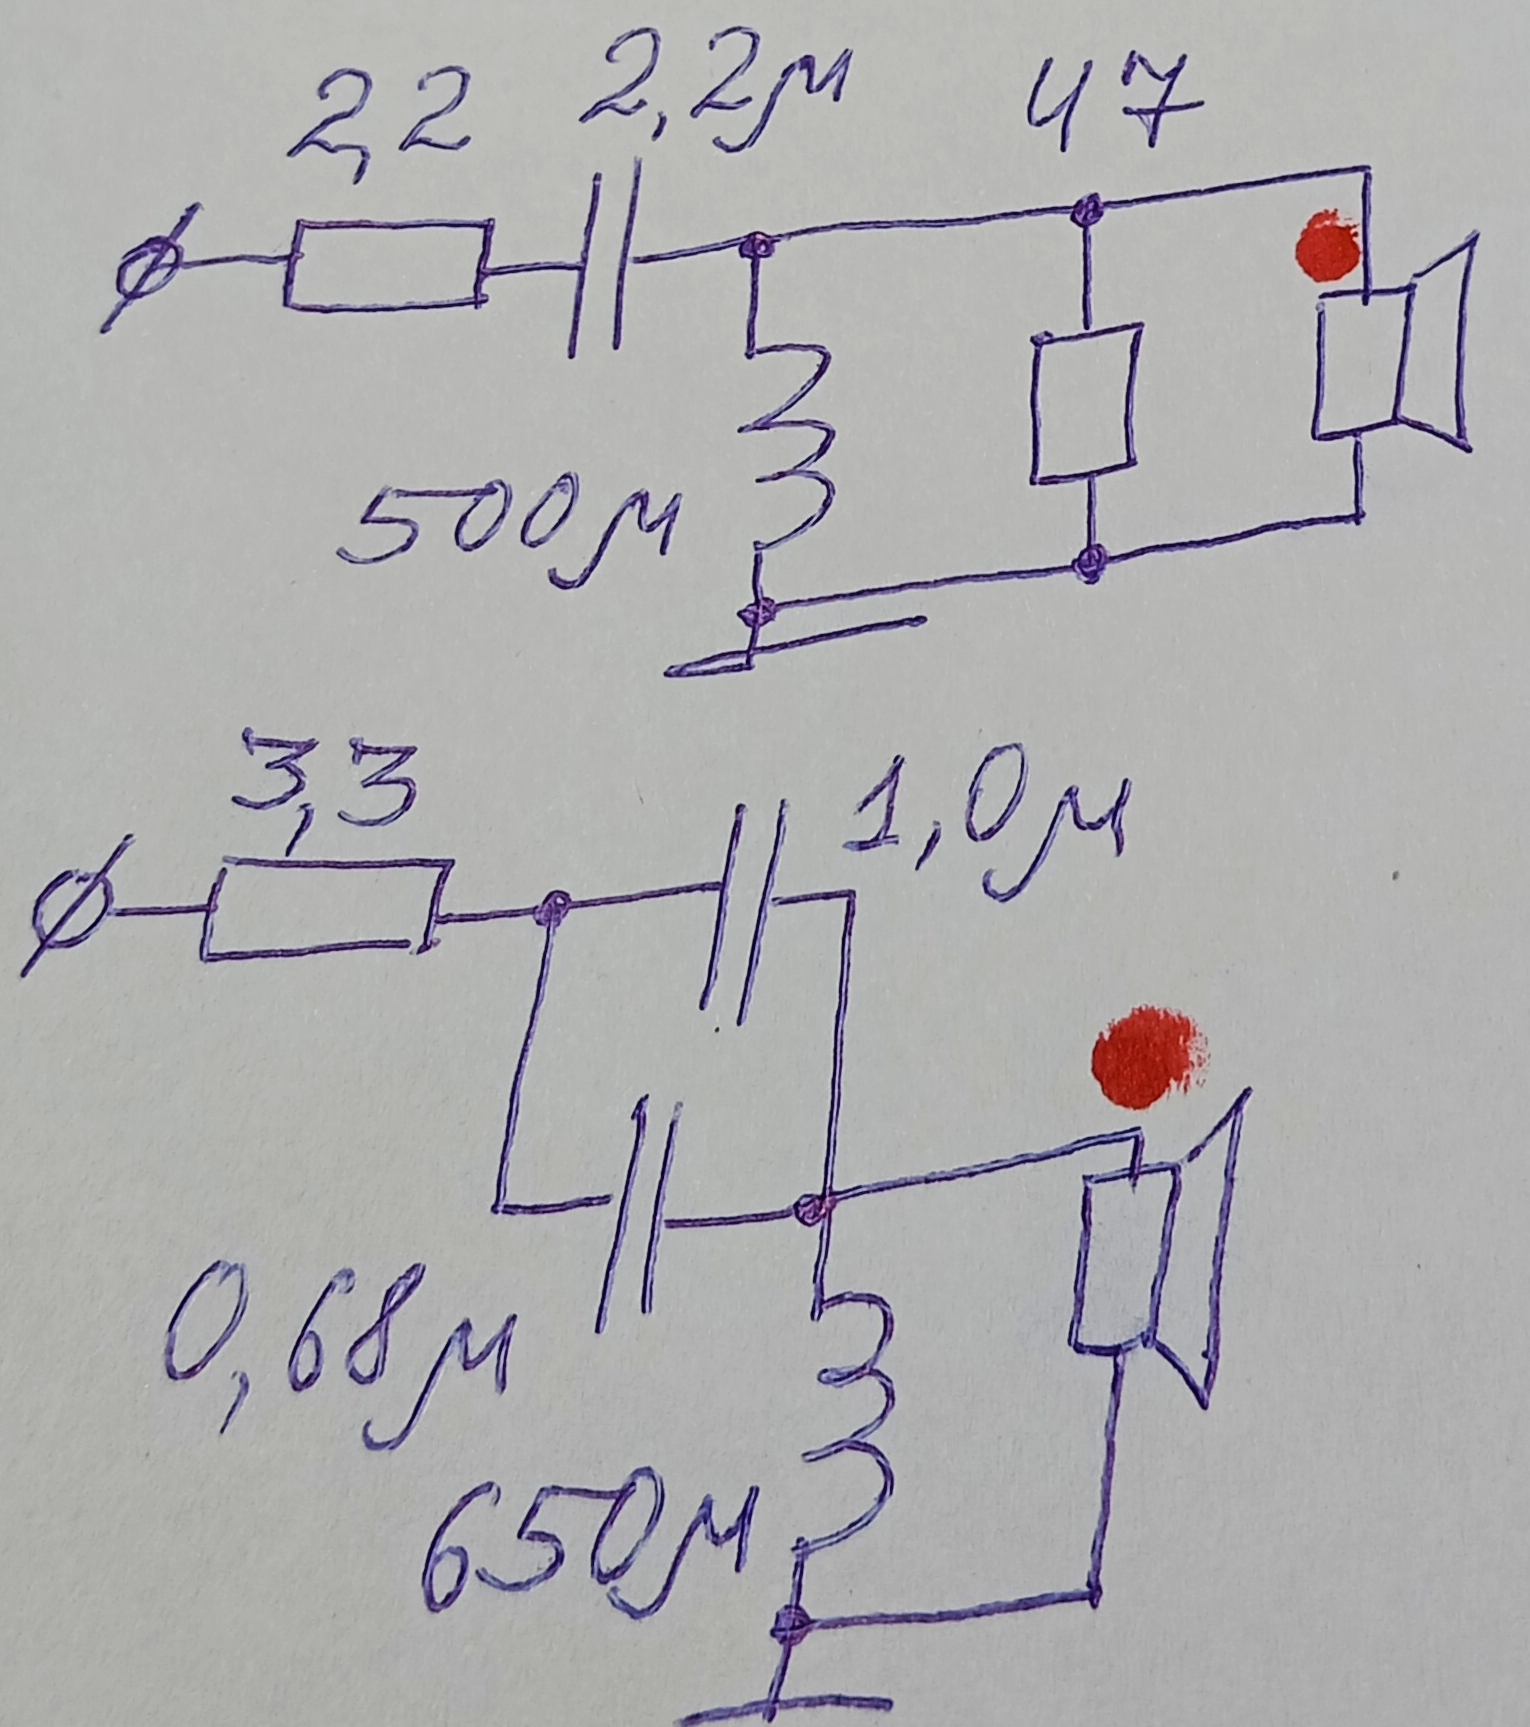 2,2 2,2м 47
500м
3,3 1,0м
0,68м
650м